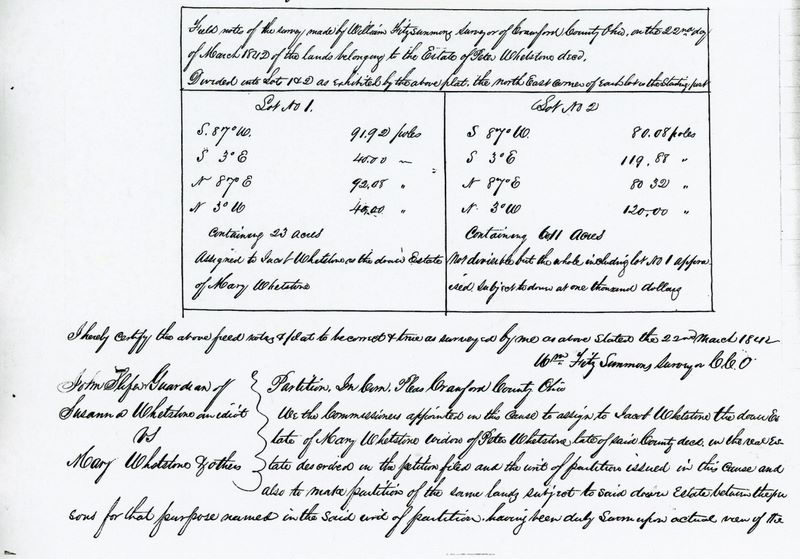 Field notes of the survey made by William Fitzsimmons surveyor of Crawford County Ohio, on the 22nd day
of March 1842 of the lands belonging to the Estate of Peter Whetstone decd,
Divided into Lots 1&2 as exhibited by the above plat. the north East corner of each lot is the starting post
Lot No 1.
S. 87° W. 91.92 poles
S 3° E 40.00 "
N 87° E 92.08 "
N 3° W 40.00 "
Containing 23 acres
Assigned to Jacob Whetstone as the dower Estate
of Mary Whetstone
Lot No 2
S 87° W. 80.08 poles
S 3° E 119.88 "
N 87° E 80 32 "
N. 3° W 120.00 "
Containing Acres
Not divisible but the whole including lot No 1 appra
ised subject to dower at one thousand dollars
I hereby certify the above feed notes & plat to be correct & true as surveyed by me as above stated the 22nd March 1842
Wm Fitz Simmons surveyor C.C.O
John Guardian of
Susannas Whetstone an idiot
vs
Mary Whetstone & others
Partition. In Com. Pleas Crawford County Ohio
We the Commissioners appointed in this cause to assign, to Jacob Whetstone the dower Es-
tate of Mary Whetstone widow of Peter Whetstone late of said County decd. in the real Es-
tate described in the petition filed and the writ of partition issued in this cause and
also to make partition of the same lands subject to said dower Estate between the per
sons for that purpose named in the said writ of partition. having been duly sworn upon actual view of the